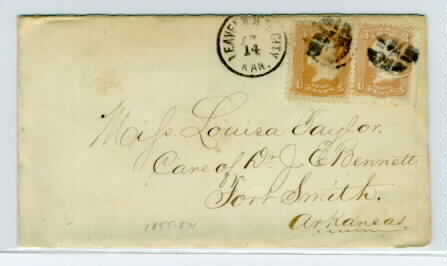 LEAVENWORTH CITY
14
KAN.
Miss Louisa Taylor.
Care of Dr J. C. Bennett
Fort Smith.
Arkansas